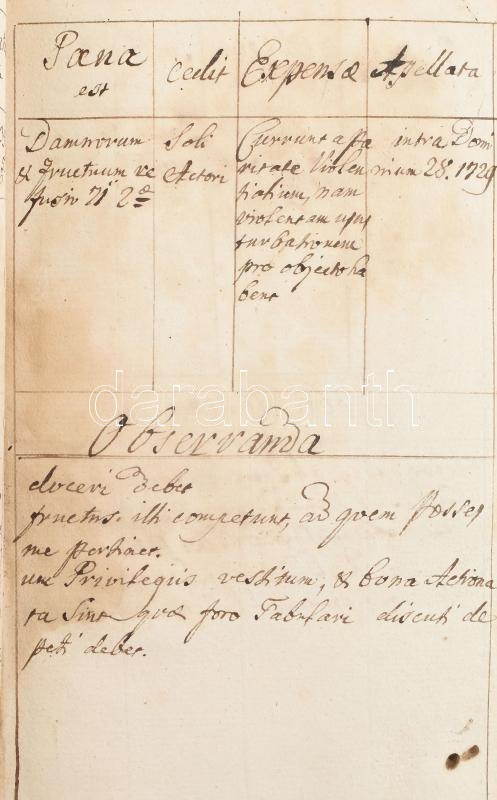 Pæna
est
cedit
Expensæ
Apellata
Damnorum
& Fructuum re
fusio 71 2æ
Soli
Actori
Currunt a pa
ritate Violen
tialium, nam
violentam usus
turbationem
pro objecto ha
bent
intra Dom
nium 28. 1729
darabanth
Observanda
doceri debet
fructus. illi competunt, ad quem posses
me pertinet.
um Privilegiis vestitum, & bona Actiona
ta sint quæ foro Tabulari discuti de
peti debet.